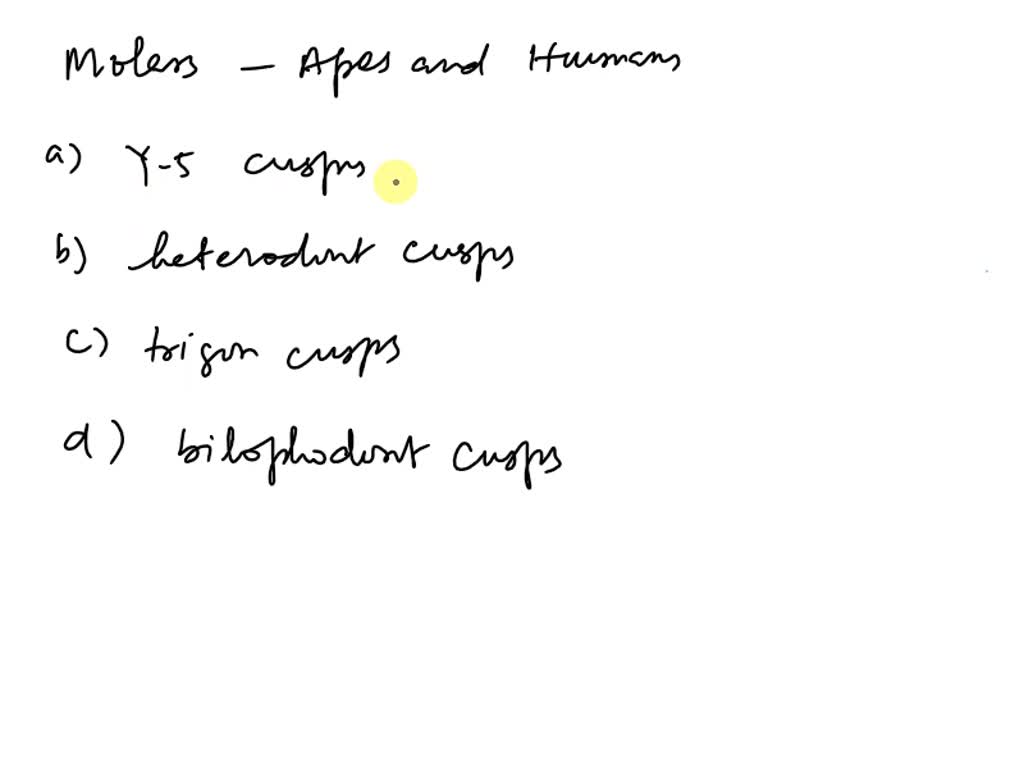 Molers - Apes and Humans
a) Y-5 cusps
b) heterodont cusps
c) trigon cusps
d) bilophodont cusps